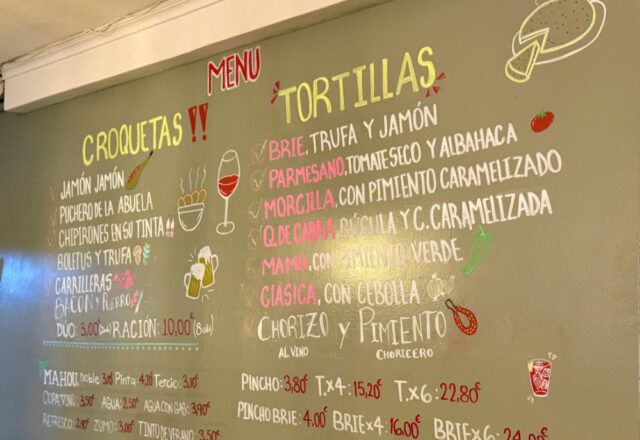 MENU
CROQUETAS!!
JAMÓN JAMÓN
PUCHERO DE LA ABUELA
CHIPIRONES EN SU TINTA
BOLETUS Y TRUFA
CARRILLERAS
BACON Y PUERRO
DÚO: 3,00€ RACIÓN: 10,00€ (8 uds)
TORTILLAS
BRIE, TRUFA Y JAMÓN
PARMESANO, TOMATE SECO Y ALBAHACA
MORCILLA, CON PIMIENTO CARAMELIZADO
Q. DE CABRA, RÚCULA Y C. CARAMELIZADA
MAMA, CON PIMIENTO VERDE
CLÁSICA, CON CEBOLLA
CHORIZO Y PIMIENTO
AL VINO CHORICERO
MAHOU: Doble: 3,00 Pinta: 4,20 Tercio: 3,10€
COPA VINO: 3,50€ AGUA: 2,50€ AGUA CON GAS: 3,90€
REFRESCO: 2,90€ ZUMO: 3,00€ TINTO DE VERANO: 3,50€
PINCHO: 3,80€ T.x4: 15,20€ T.x6: 22,80€
PINCHO BRIE: 4.00€ BRIEx4: 16,00€ BRIEx6: